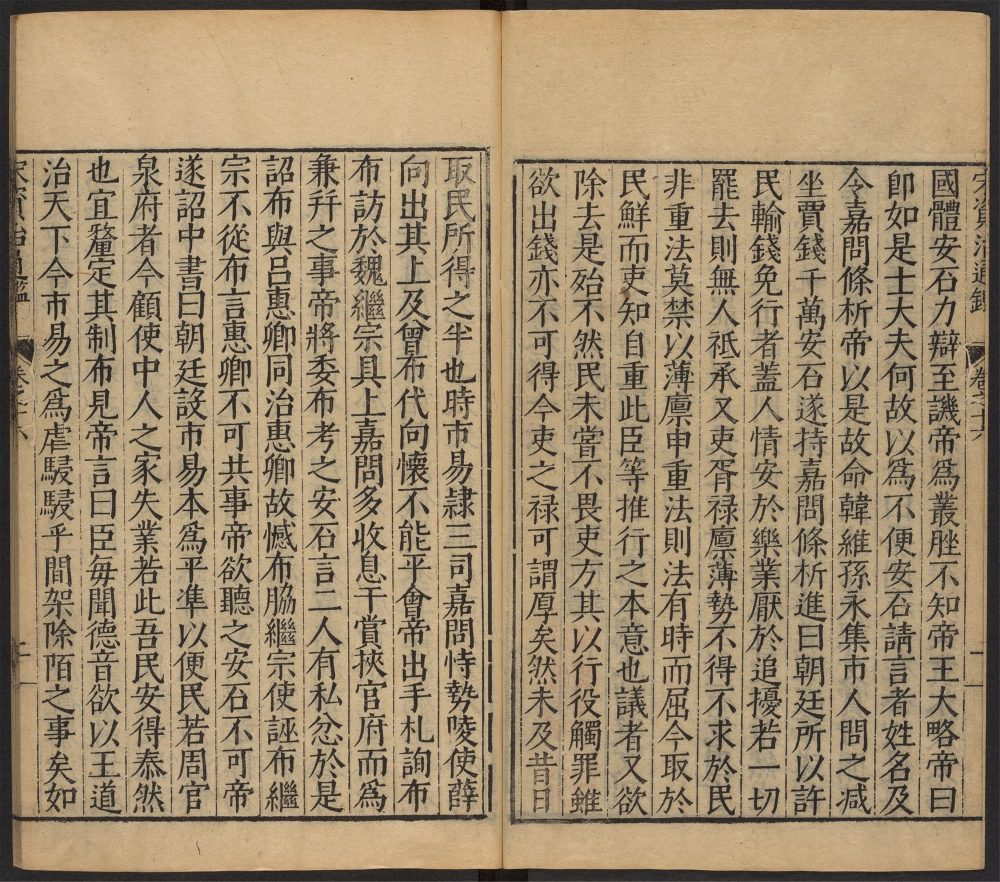 國體安石力辯至譏帝爲叢脞不知帝王大略帝曰
卽如是士大夫何故以爲不便安石請言者姓名及
令嘉問條析帝以是故命韓維孫永集市人問之减
坐賈錢千萬安石遂持嘉問條析進曰朝廷所以許
民輸錢免行者蓋人情安於樂業厭於追擾若一切
罷去則無人祗承又吏胥禄廪薄勢不得不求於民
非重法莫禁以薄廪申重法則法有時而屈今取於
民鮮而吏知自重此臣等推行之本意也議者又欲
除去是殆不然民未嘗不畏吏方其以行役觸罪雖
欲出錢亦不可得今吏之禄可謂厚矣然未及昔日
取民所得之半也時市易隷三司嘉問恃勢陵使薛
向出其上及曾布代向懷不能平會帝出手札詢布
布訪於魏繼宗具上嘉問多收息干賞挾官府而爲
兼幷之事帝將委布考之安石言二人有私忿於是
詔布與吕惠卿同治惠卿故憾布脇繼宗使誣布繼
宗不從布言惠卿不可共事帝欲聽之安石不可帝
遂詔中書曰朝廷設市易本爲平準以便民若周官
泉府者今顧使中人之家失業若此吾民安得泰然
也宜釐定其制布見帝言曰臣每聞德音欲以王道
治天下今市易之爲虐駸駸乎間架除陌之事矣如